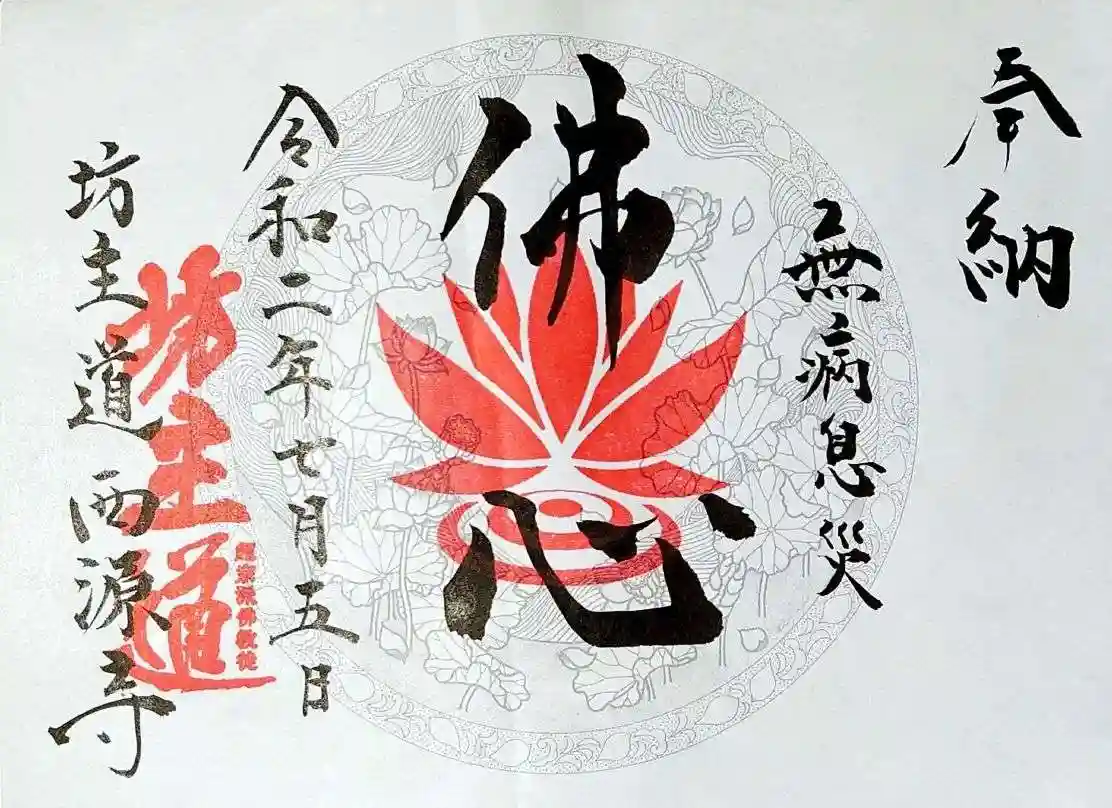 奉納
無病息災
佛心
令和二年七月五日
坊主道 西源寺
坊主道